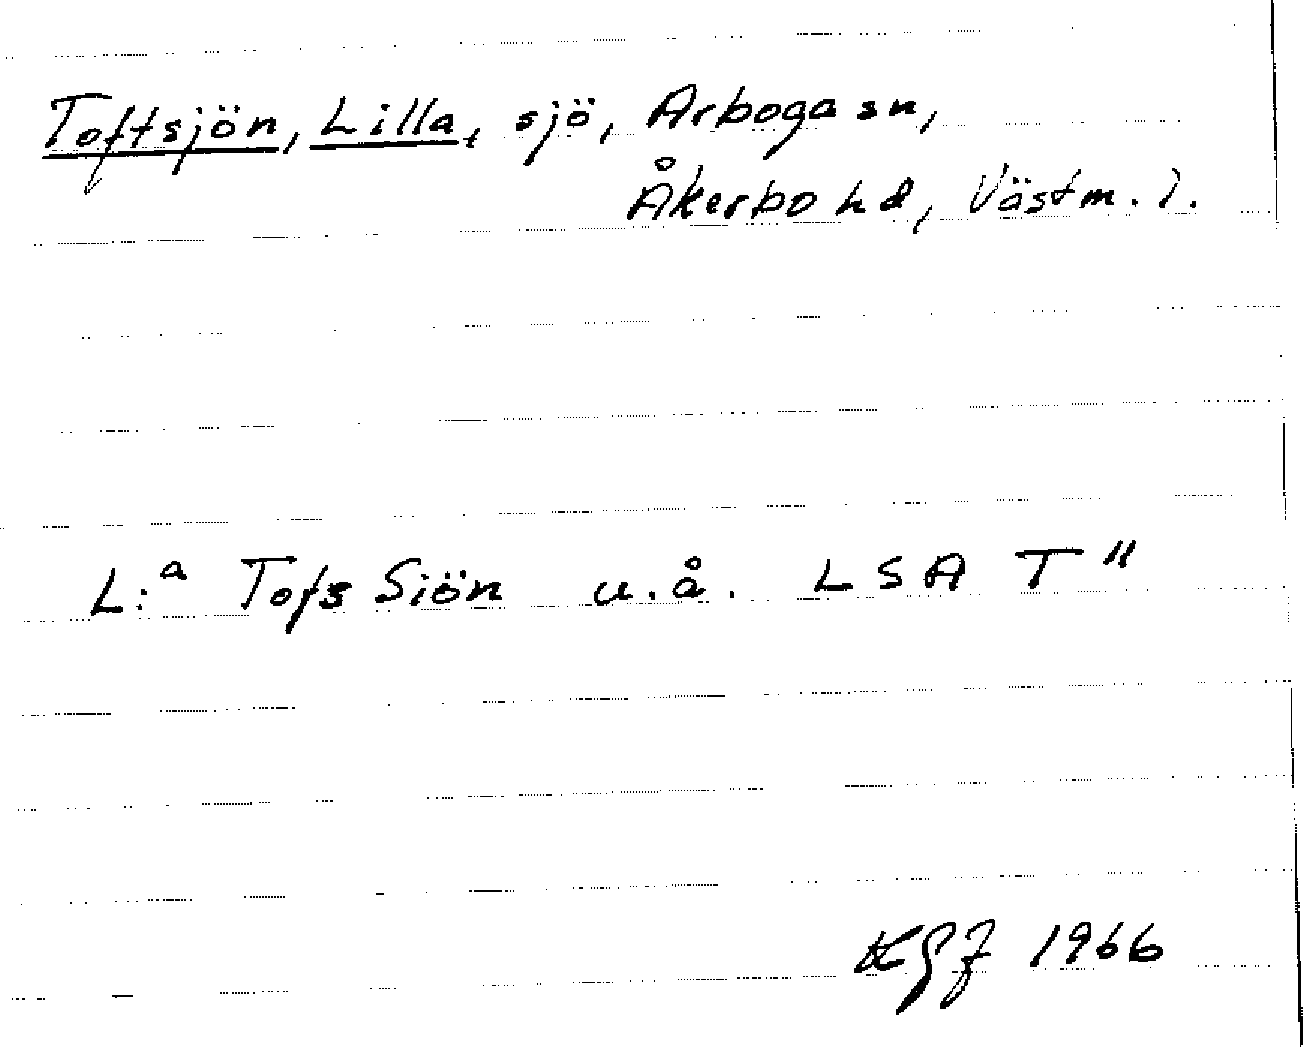 Toftsjön, Lilla, sjö, Arboga sn,
Åkerbo hd, Västm. l.
L:a Tofs Siön u.å. LSA T"
1966